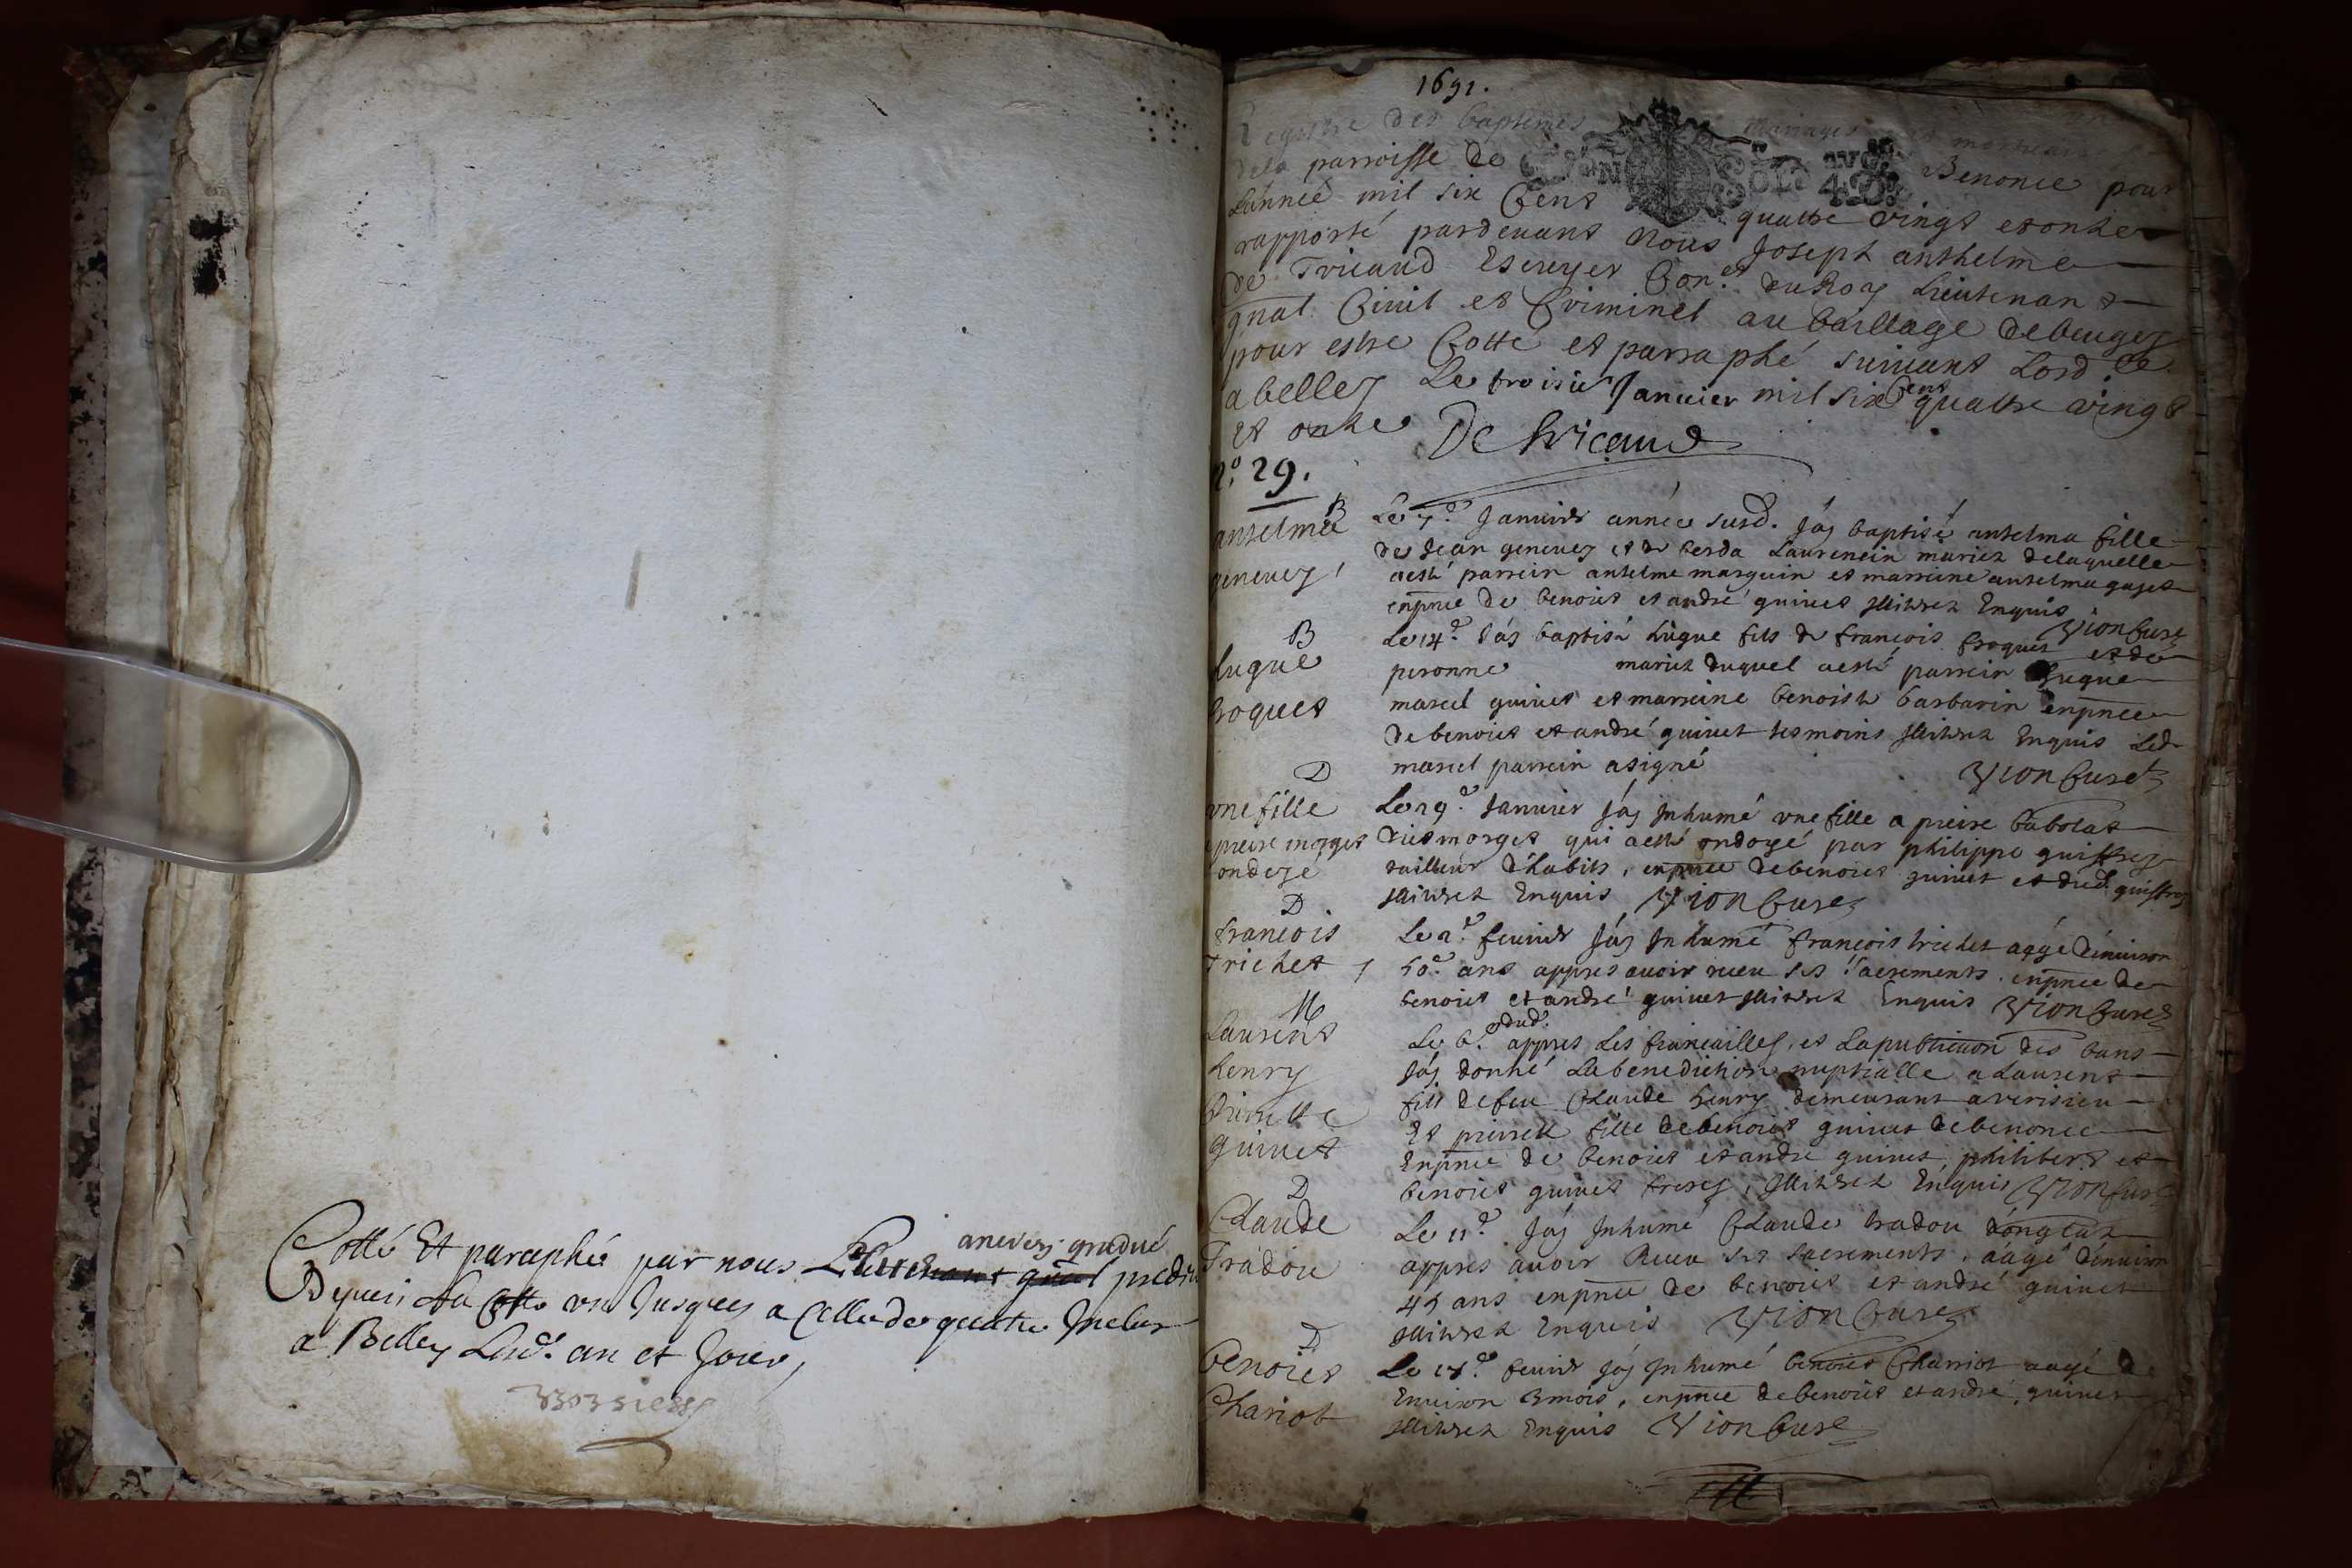 Cotté Et paraphé par nous Lieutenant gnal ancien gradué
Depuis la Cotte une Jusques a Celle de quatre Inclus
a Belley Lesd. an et Jour,
1691.
Registre des baptemes mariages et mortuaires
dela parroisse de Benonce pour
Lannée mil six Cent quattre vingt et onze
rapporté pardeuant Nous Joseph anthelme
de Tricaud Escuyer Con.er du Roy Lieutenant
gnal Ciuil et Criminel au baillage de beugey
pour estre Cotté et parraphé suiuant Lord.ce
a belley Le troisie Januier mil six Cent quattre vingt
et onze De tricaud
N.o 29.
B
anselme
geneuey
Le 7.e Januier année susd. Jáy baptisé antelma fille
de Jean geneuey et de berda Laurencin mariez delaquelle
a esté parrein antelme marguin et marreine antelma gaget
enpnce de benoict et andré guinet Illitrez Enquis Vion Curé
B
hugue
froquet
Le 14.e Jáy baptisé hugue fils de francois froquet et de
peronne mariez duquel a esté parrein hugue
marcel guinet et marreine benoiste barbarin enpnce
de benoict et andré guinet tesmoins Illitrez Enquis Led
marcel parrein a signé Vion Curé
D
vne fille
a pierre morget
ondoyé
Le 29.e Januier Jáy Inhumé vne fille a pierre babolat
dict morget qui a esté ondoyé par philippe guiffrey
tailleur d'habits, enpnce de benoict guinet et dud. guiffrey
Illitrez Enquis Vion Curé
D
francois
Trichet
Le 2.e feurier Jáy Inhumé francois trichet aágé d'enuiron
50.e ans appres auoir receu ses sacrements enpnce de
benoict et andré guinet Illitrez Enquis Vion Curé
M
Laurent
henry
Pierrette
guinet
Le 6.e dud. appres Les fiancailles, et La publication des bans
Jáy donné La benediction nuptialle a Laurent
fils de feu Claude henry demeurant a verisieu
Et pierrette fille de benoict guinet de benonce
Enpnce de benoict et andre guinet, philibert et
benoict guinet freres, Illitrez Enquis Vion Curé
D
Claude
Tradou
Le 11.e Jáy Inhumé Claude tradou
appres auoir Receu ses sacrements, aágé d'enuiron
45 ans enpnce de benoict et andré guinet
Illitrez Enquis Vion Curé
D
benoict
Chariot
Le 18.e feurier Jáy Inhumé benoict Charriot aagé de
Enuiron 3 mois, enpnce de benoict et andré guinet
Illitrez Enquis Vion Curé